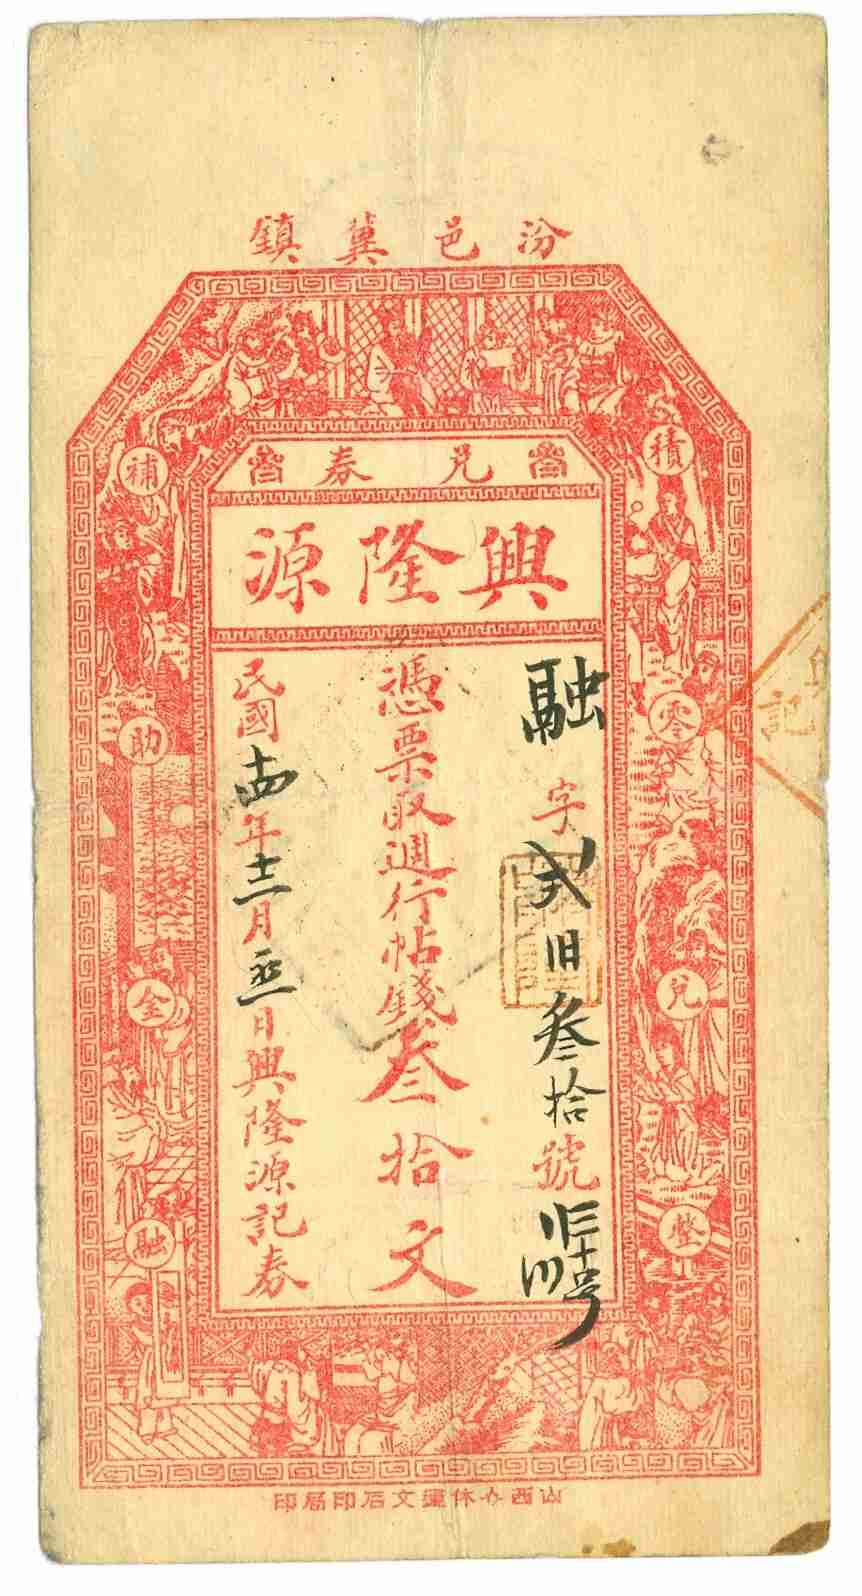 汾邑冀鎮
兌券
興隆源
融字弍百叁拾號
憑票取通行帖錢叁拾文
民國十四年十二月 日興隆源記券
積零兌整
補助金融
山西介休運文石印局印